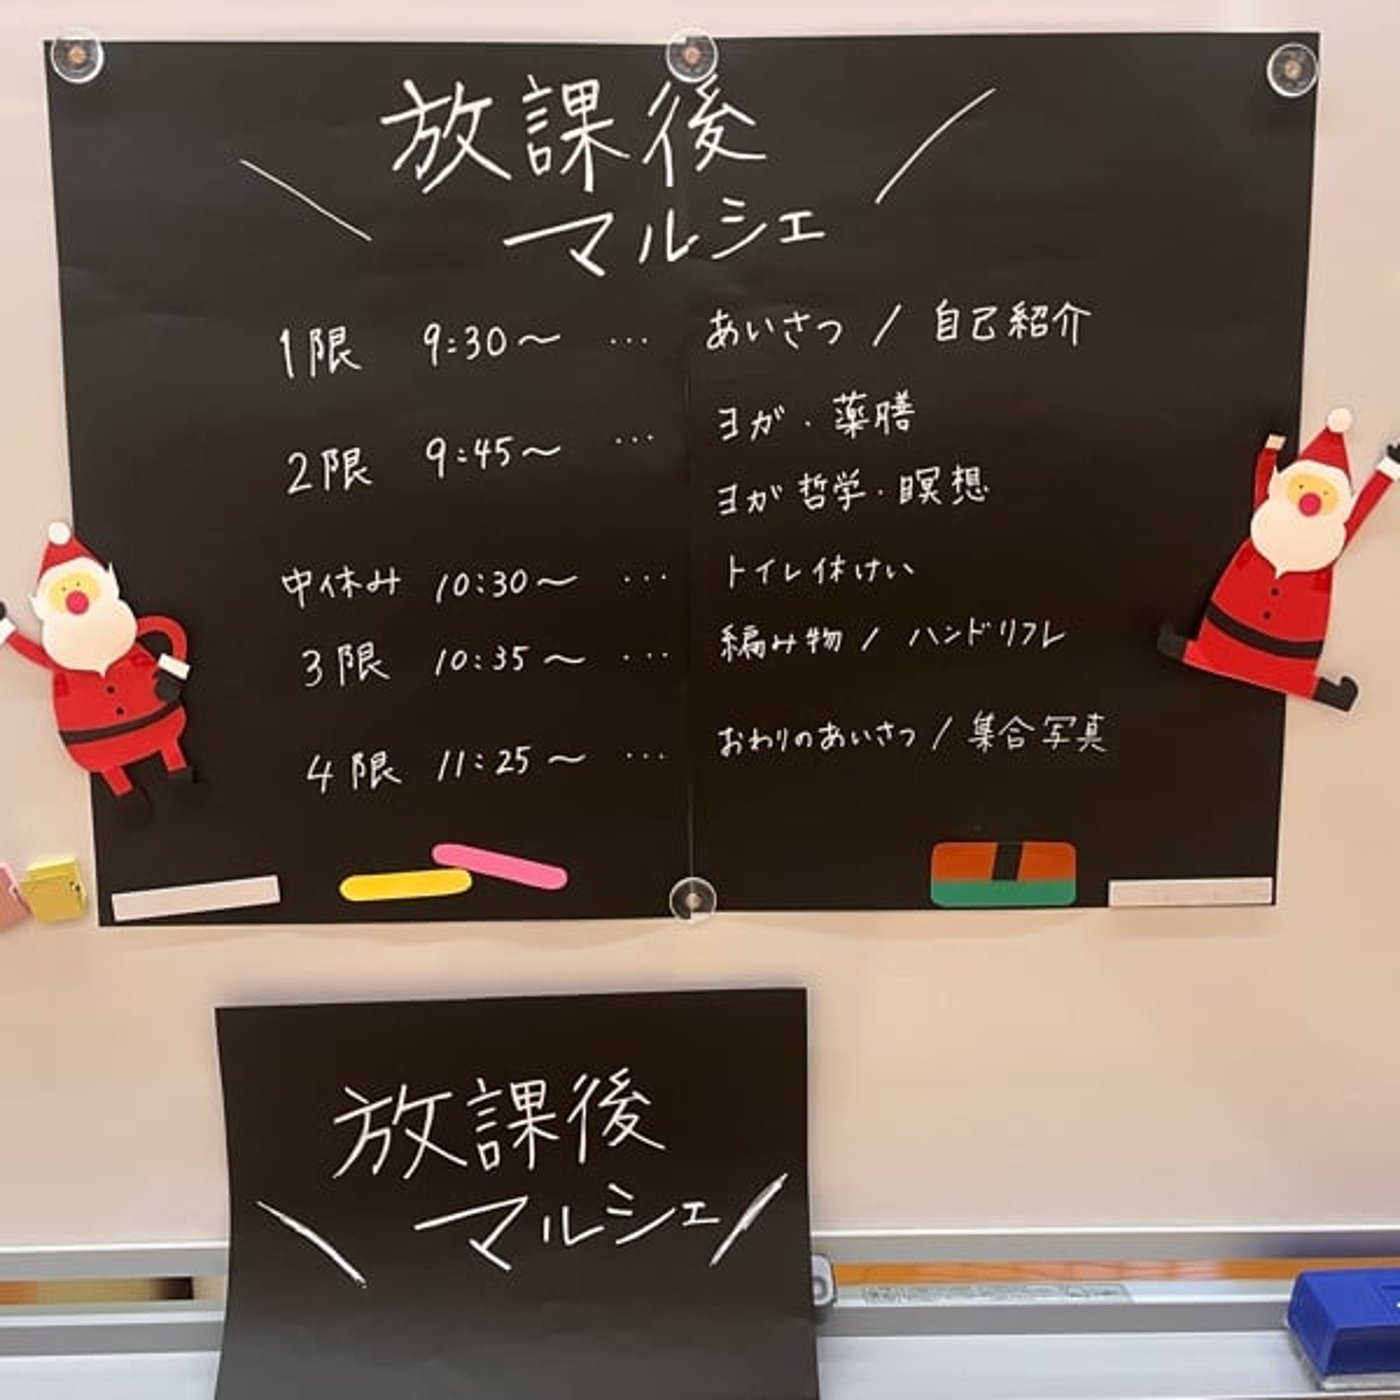 放課後
マルシェ
1限 9:30〜 ... あいさつ / 自己紹介
2限 9:45〜 ... ヨガ・薬膳
ヨガ哲学・瞑想
中休み 10:30〜 ... トイレ休けい
3限 10:35〜 ... 編み物 / ハンドリフレ
4限 11:25〜 ... おわりのあいさつ / 集合写真
放課後
マルシェ